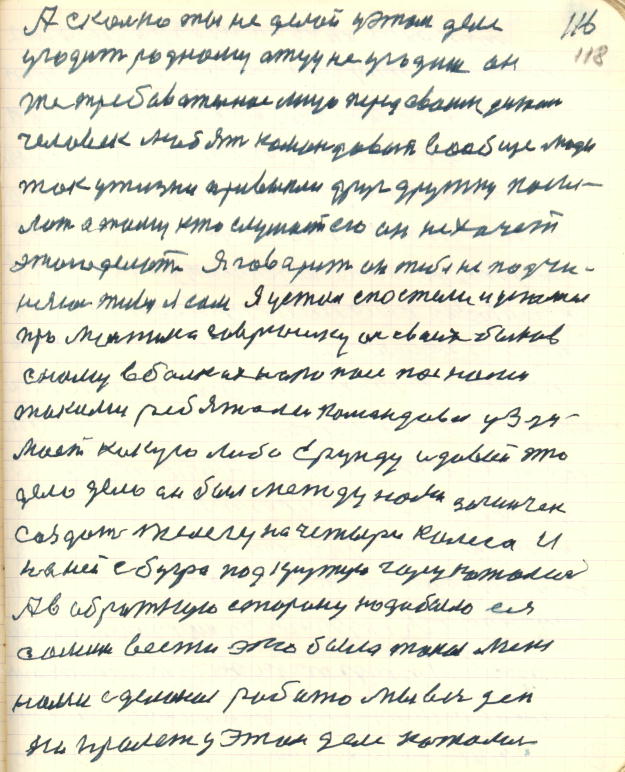 А сколко ты не делай у этом деле 116
угодит родному отцу не угодиш он 118
же требавателное лицо перед своим детям
человек любят командоват вообще люди
так у жизни привыкли друг дружку посы-
лат а тому кто слушает его он не хочет
этого делат Я говарит он тебе не подчи-
няюс живи сам Я устал с постели и
про Мартина он своих быков
с ному в балках наро пас
такими ребятами командовал уЗду-
мает какую либо Ерунду и довай это
дело дело он был между нами зачинчек
создат телегу на четыри колеса И
на ней с бугра под крутую гору каталис
А в обратную сторону надабыло ея
самим вести это была така
нами сделана работа мы вес ден
на пролет у Этом деле каталис